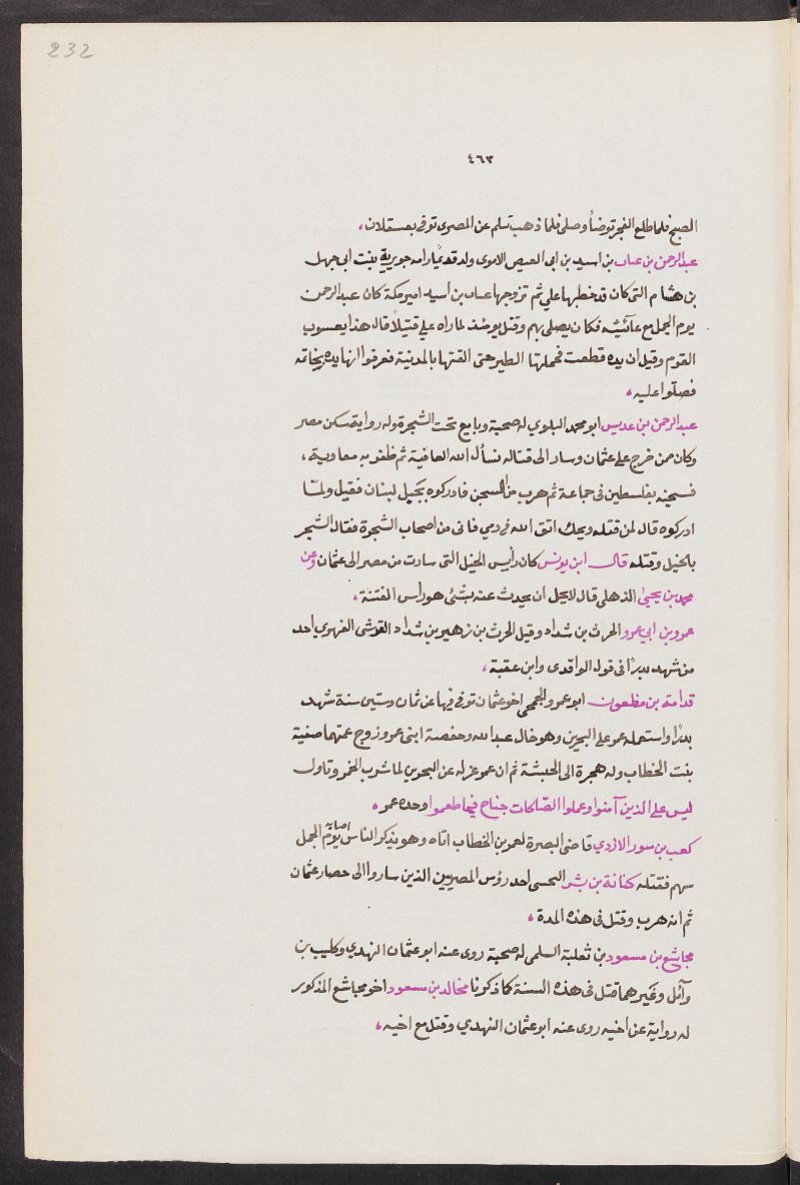 232
٤٦٣
الصبح فلما طلع الفجر توضأ وصلى فلما ذهب تسلم عن المصرى توفى بعسقلان،
عبد الرحمن بن عتاب بن اسيد بن ابى العيص الاموى ولد قديما وامه جويرية بنت ابى جهل
بن هشام التى كان قد خطبها على ثم تزوجها عتاب بن اسيد امير مكة كان عبد الرحمن
يوم الجمل مع عائشة فكان يصلى بهم وقتل يومئذ لما راه على قتيلاً قال هذا يعسوب
القوم وقيل ان يده قطعت فحملتها الطير حتى القتها بالمدينة فعرفوا انها يده بخاتمه
فصلوا عليه،
عبد الرحمن بن عديس ابو محمد البلوي له صحبة وبايع تحت الشجرة وله رواية سكن مصر
وكان ممن خرج على عثمان وسار الى قتاله نسأل الله العافية ثم ظفر به معاوية،
فسجنه بفلسطين فى جماعة ثم هرب من السجن فادركوه بجبل لبنان فقتل ولمّا
ادركوه قال لمن قتله ويحك اتق الله فى دمي فانى من اصحاب الشجرة فقال الشجر
بالجبل وقتله قال ابن يونس كان رأيس الخيل التى سارت من مصر الى عثمان وعن
محمد بن يحيى الذهلى قال لا يحل ان يحدث عنه بشئ هو راس الفتنة،
عمرو بن ابي عمرو الحرث بن شداد وقيل الحرث بن زهير بن شداد القرشى الفهري احد
من شهد بدرًا فى قول الواقدى وابن عقبة،
قدامة بن مظعون ابو عمرو الجمحى اخو عثمان توفى فيها عن ثمان وستين سنة شهد
بدرًا واستعمله عمر على البحرين وهو خال عبد الله وحفصة ابنى عمر وزوج عمتهما صفية
بنت الخطاب وله هجرة الى الحبشة ثم ان عمر عزله عن البحرين لما شرب الخمر وتاول
ليس على الذين آمنوا وعملوا الصّالحات جناح فيما طعموا وحده عمر،
كعب بن سور الازدي قاضى البصرة لعمر بن الخطاب اتاه وهو يذكر الناس يوم الجمل اصابه
سهم فقتله كنانة بن بشر احد رؤس المصريين الذين ساروا الى حصار عثمان
ثم انه هرب وقتل فى هذه المدة،
مجاشع بن مسعود بن ثعلبة السلمى له صحبة روى عنه ابو عثمان النهدي وكليب بن
وآئل وغيرهما قتل فى هذه السنة كما ذكرنا مجالد بن مسعود اخو مجاشع المذكور
له رواية عن اخيه روى عنه ابو عثمان النهدي وقتل مع اخيه،